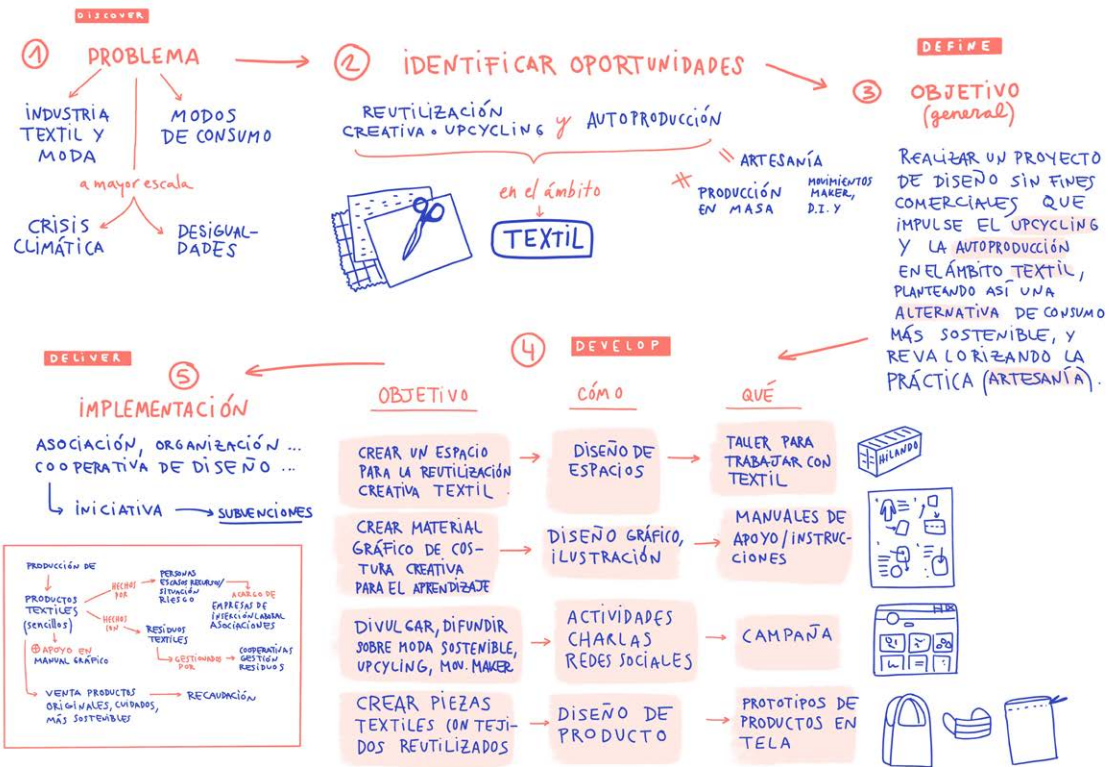 DISCOVER
1 PROBLEMA
INDUSTRIA
TEXTIL Y
MODA
MODOS
DE CONSUMO
a mayor escala
CRISIS
CLIMÁTICA
DESIGUAL-
DADES
2 IDENTIFICAR OPORTUNIDADES
REUTILIZACIÓN
CREATIVA o UPCYCLING y AUTOPRODUCCIÓN
= ARTESANÍA
≠ PRODUCCIÓN
EN MASA
MOVIMIENTOS
MAKER,
D.I.Y
en el ámbito
TEXTIL
DEFINE
3 OBJETIVO
(general)
REALIZAR UN PROYECTO
DE DISEÑO SIN FINES
COMERCIALES QUE
IMPULSE EL UPCYCLING
Y LA AUTOPRODUCCIÓN
EN EL ÁMBITO TEXTIL,
PLANTEANDO ASÍ UNA
ALTERNATIVA DE CONSUMO
MÁS SOSTENIBLE, Y
REVALORIZANDO LA
PRÁCTICA (ARTESANÍA).
4 DEVELOP
OBJETIVO
CÓMO
QUÉ
CREAR UN ESPACIO
PARA LA REUTILIZACIÓN
CREATIVA TEXTIL.
DISEÑO DE
ESPACIOS
TALLER PARA
TRABAJAR CON
TEXTIL
HILANDO
CREAR MATERIAL
GRÁFICO DE COS-
TURA CREATIVA
PARA EL APRENDIZAJE
DISEÑO GRÁFICO,
ILUSTRACIÓN
MANUALES DE
APOYO/INSTRUC-
CIONES
DIVULGAR, DIFUNDIR
SOBRE MODA SOSTENIBLE,
UPCYLING, MOV. MAKER
ACTIVIDADES
CHARLAS
REDES SOCIALES
CAMPAÑA
CREAR PIEZAS
TEXTILES CON TEJI-
DOS REUTILIZADOS
DISEÑO DE
PRODUCTO
PROTOTIPOS DE
PRODUCTOS EN
TELA
DELIVER
5
IMPLEMENTACIÓN
ASOCIACIÓN, ORGANIZACIÓN ...
COOPERATIVA DE DISEÑO ...
INICIATIVA
SUBVENCIONES
PRODUCCIÓN DE
PRODUCTOS
TEXTILES
(sencillos)
HECHOS
POR
PERSONAS
ESCASOS RECURSOS/
SITUACIÓN
RIESGO
A CARGO DE
EMPRESAS DE
INSERCIÓN LABORAL
ASOCIACIONES
HECHOS
CON
RESIDUOS
TEXTILES
GESTIONADO
POR
COOPERATIVAS
GESTIÓN
RESIDUOS
⊕ APOYO EN
MANUAL GRÁFICO
VENTA PRODUCTOS
ORIGINALES, CUIDADOS,
MÁS SOSTENIBLES
RECAUDACIÓN